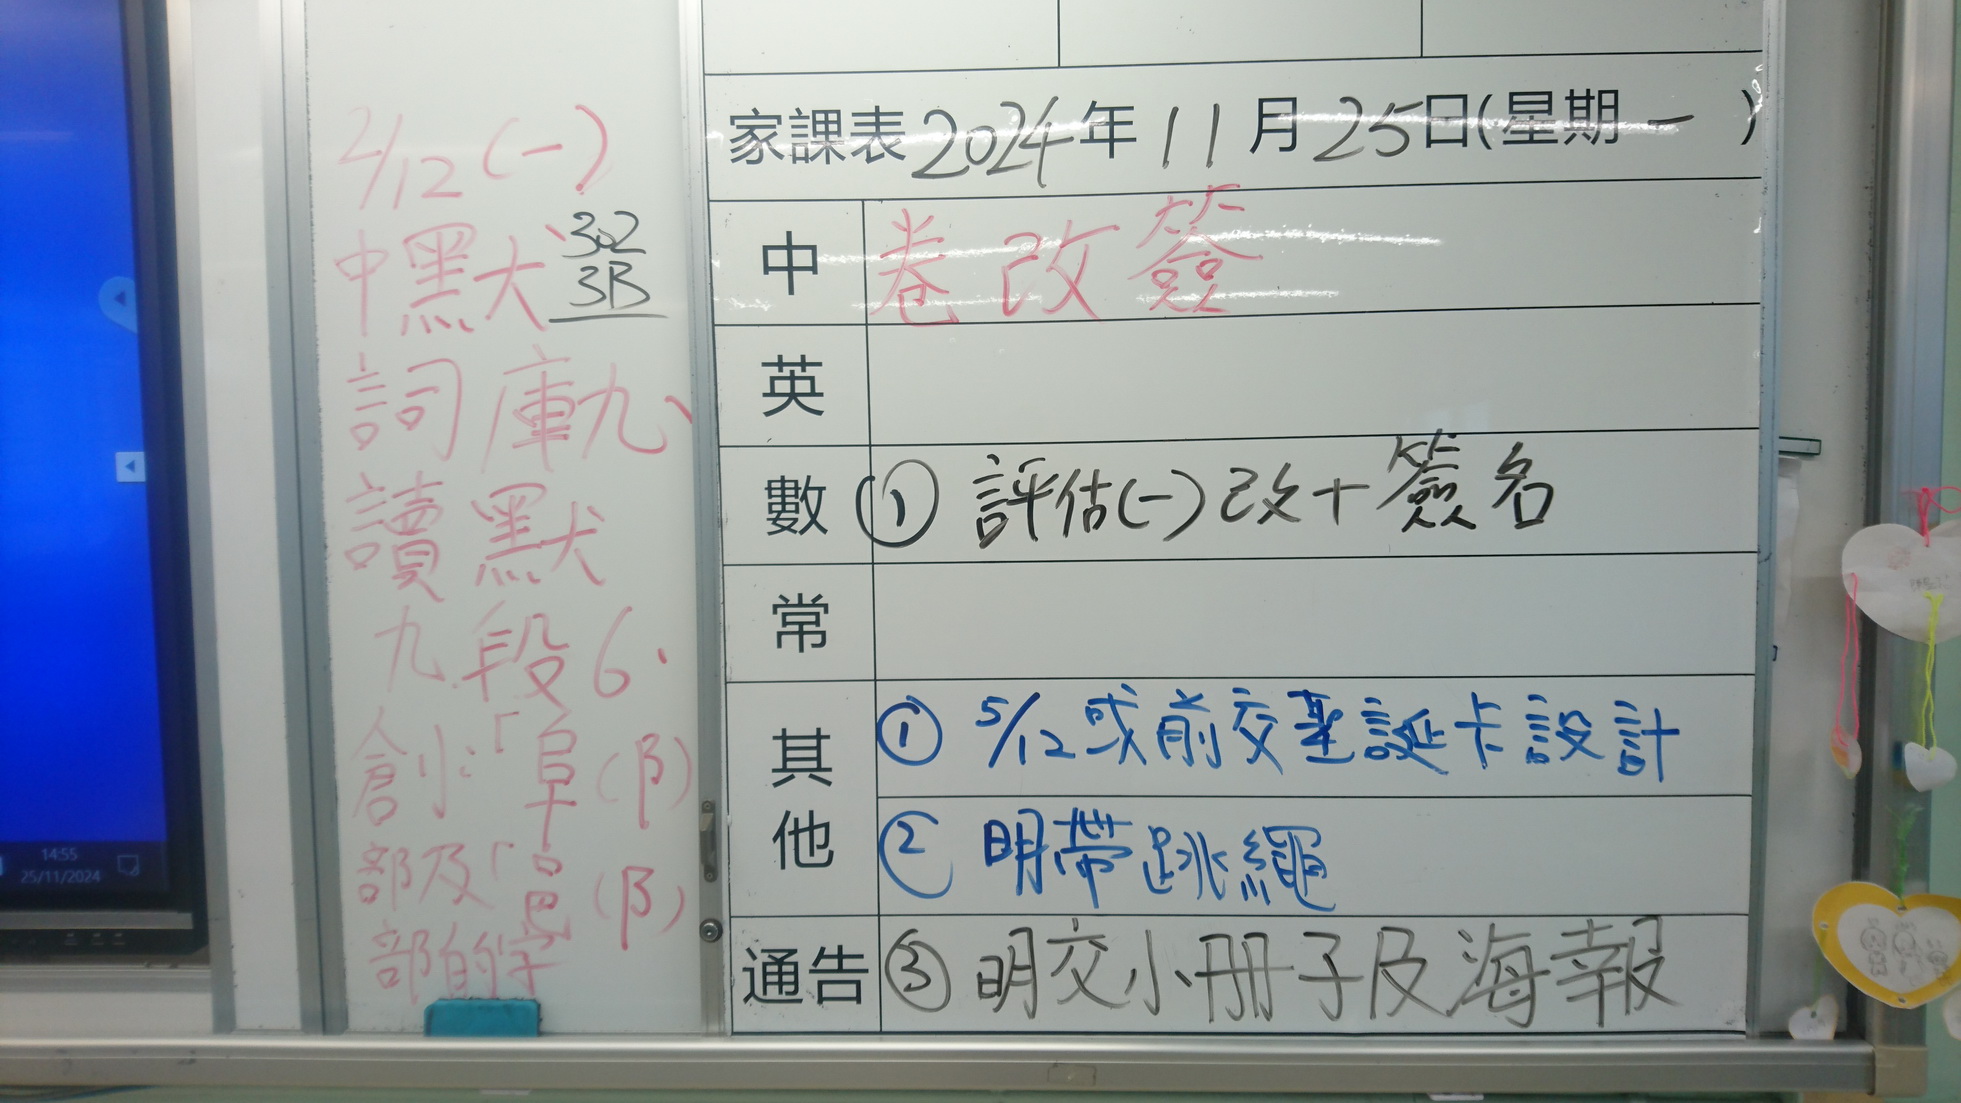 2/12(一)
中默犬
302
3B
詞庫九、
讀默
九段6.
創小:「阜(阝)
部及「邑(阝)
部的字
家課表2024年11月25日(星期一)
中 卷改簽
英
數 ① 評估(一)改+簽名
常
其他 ① 5/12或前交聖誕卡設計
② 明帶跳繩
通告 ③ 明交小冊子及海報
14:55
25/11/2024